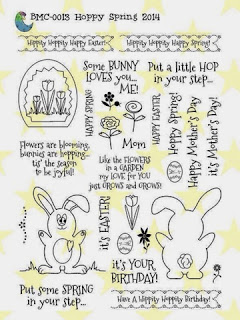 BMC-0013 Hoppy Spring 2014
Hippity Hoppity Happy Easter!
Hippity Hoppity Happy Spring!
Some BUNNY
LOVES you...
ME!
Put a little HOP
in your step...
HAPPY SPRING
HAPPY EASTER
Hoppy Spring!
Happy Mother's Day
it's Mother's Day!
Mom
Flowers are blooming,
bunnies are hopping...
'tis the season
to be joyful!
Like the FLOWERS
in a GARDEN
my LOVE for YOU
just GROWS and GROWS!
it's EASTER!
it's YOUR
BIRTHDAY!
Put some SPRING
in your step...
Have A Hippity Hoppity Birthday!